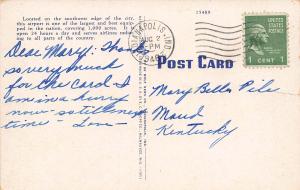 Located on the southwest edge of the city,
this airport is one of the largest and best equipped
in the nation, covering 1,000 acres. It is
open 24 hours a day and serves airlines radiating
to all parts of the country.
Dear Mary: Thanks
so very much
for the card. I
am in a hurry
now so till next
time - Love -
INDIANAPOLIS, IND.
AUG 2
PM
1 CENT 1
POST CARD
Mary Bella Pile
Maud
Kentucky